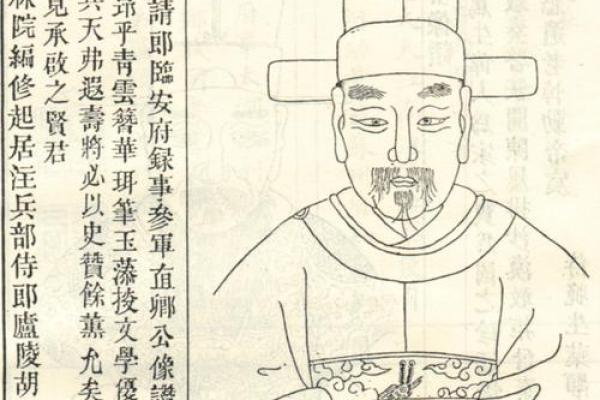 請郎臨安府録事參軍直卿公像讃
乎青雲簪華珥筆玉藻掞文學優
天弗遐壽將必以史贊餘薰允矣
見承啟之賢君
林院編修起居注兵部侍郎廬陵胡